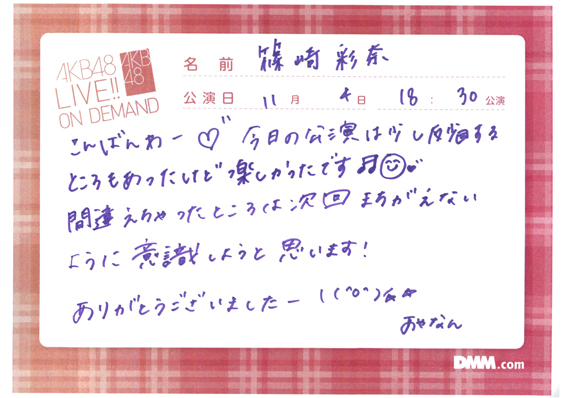 AKB48
LIVE!!
ON DEMAND
AKB
48
名前 篠崎彩奈
公演日 11月 4日 18:30公演
こんばんわー♡ 今日の公演は少し反省する
ところもあったけど楽しかったです♬☺♥
間違えちゃったところは次回まちがえない
ように意識しようと思います!
ありがとうございましたー \(^o^)☆★
あやなん
DMM.com